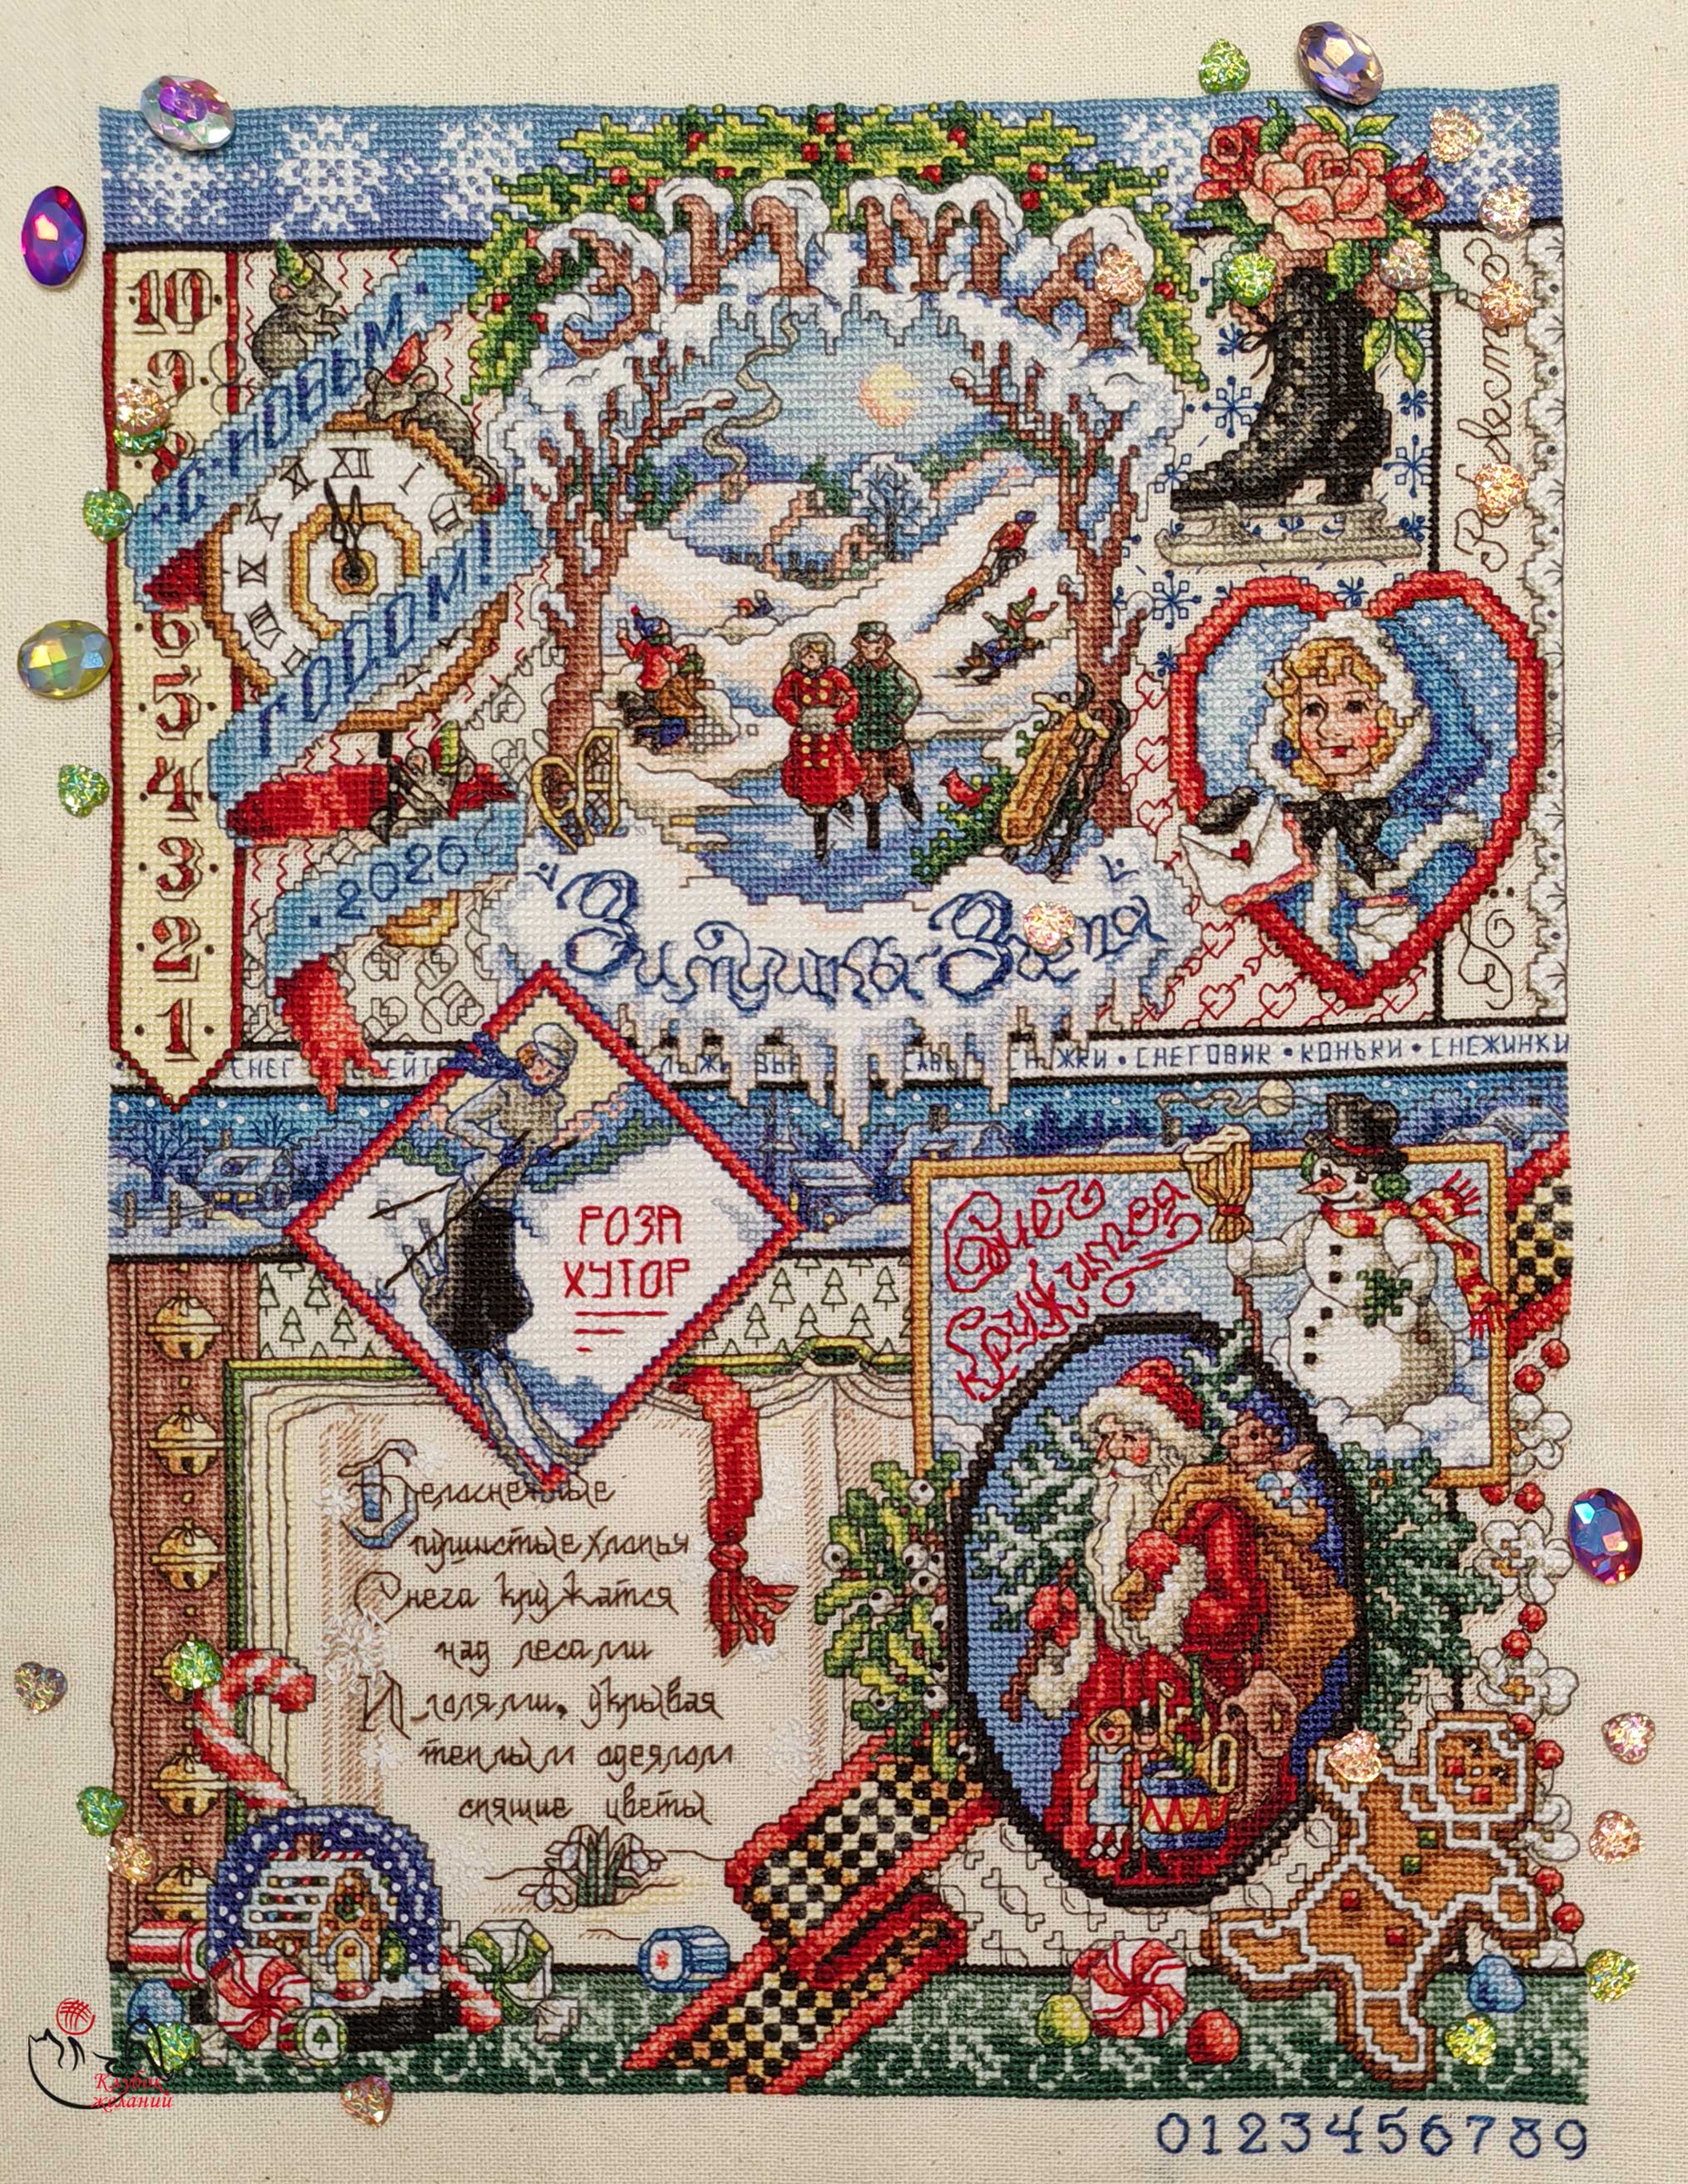 ЗИМА
10
С НОВЫМ
ГОДОМ!
XII
I
II
XI
X
IX
VIII
6
5
4
3
2
1
2020
Зимушка Зима
СНЕГ
СНЕЖКИ • СНЕГОВИК • КОНЬКИ • СНЕЖИНКИ
РОЗА
ХУТОР
Снег
кружится
Белоснежные
пушистые хлопья
Снега кружатся
над лесами
И полями, укрывая
теплым одеялом
спящие цветы
Клубок
желаний
0123456789